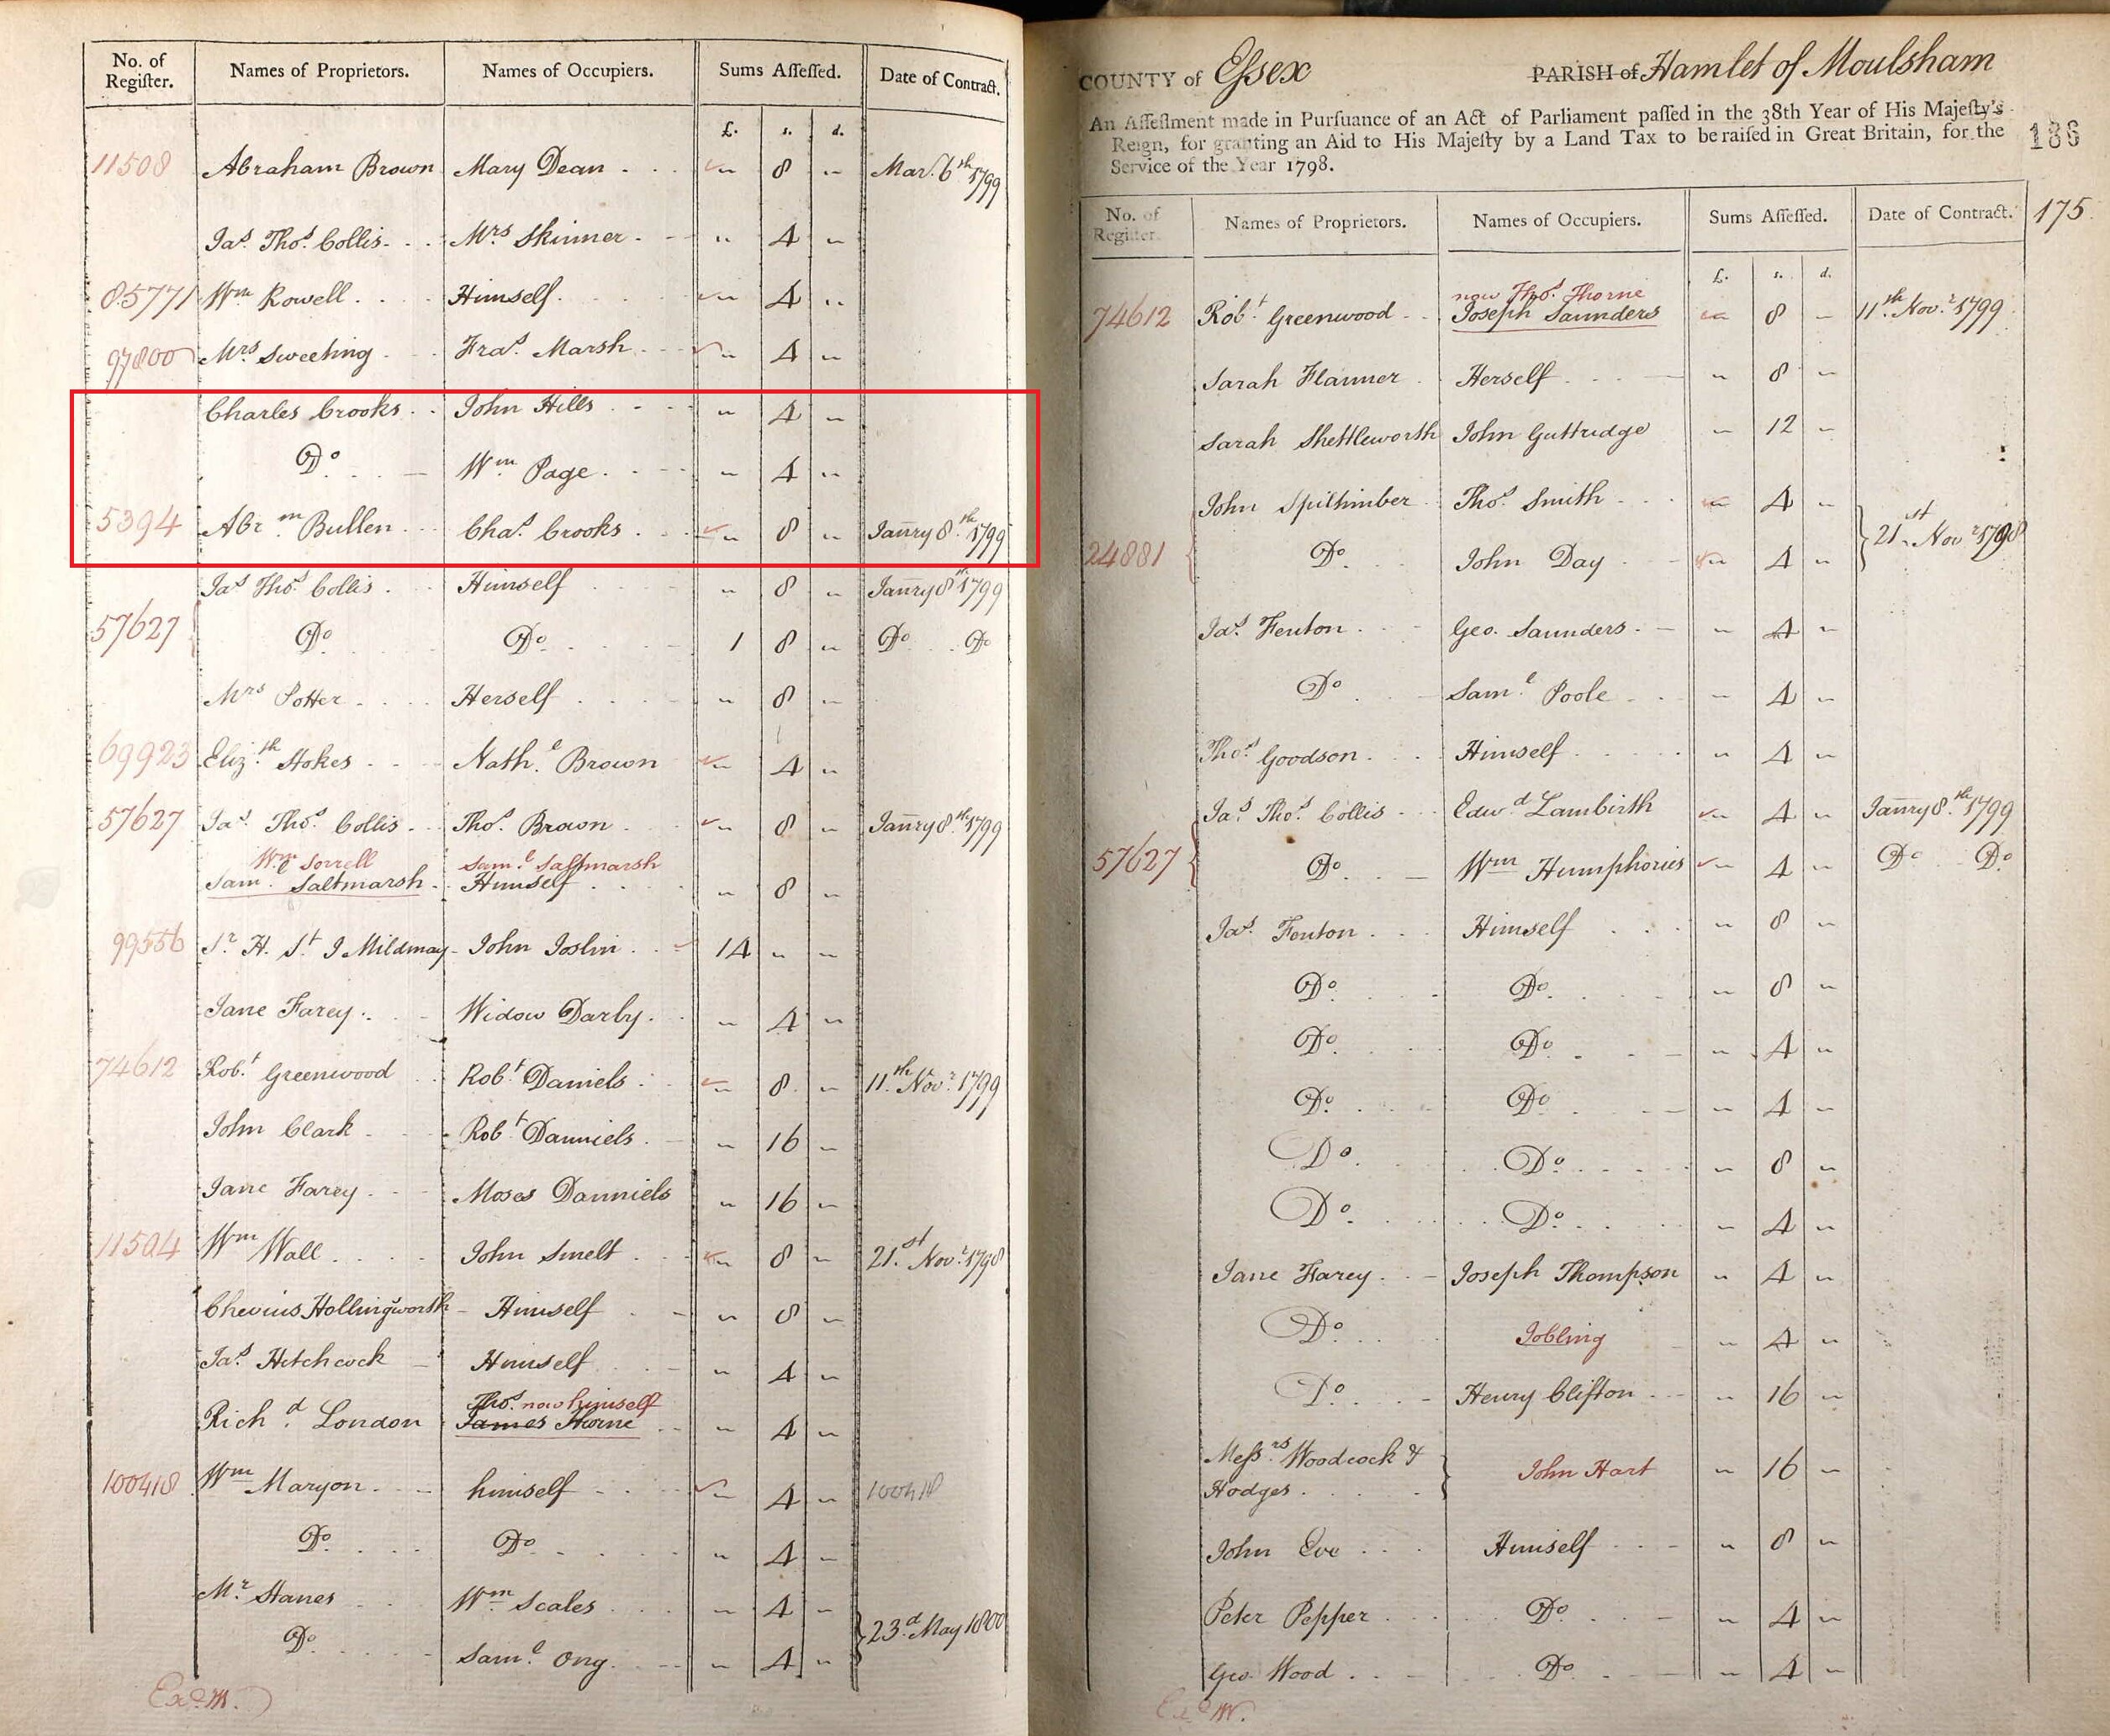 No. of Regiſter. Names of Proprietors. Names of Occupiers. Sums Aſſeſſed. Date of Contract.
£. s. d.
11508 Abraham Brown Mary Dean 〃 8 〃 Mar. 6th 1799
Jas. Thos. Collis Mrs Skinner 〃 4 〃
85771 Wm Rowell Himself 〃 4 〃
97800 Mrs Sweeting Fras. Marsh 〃 4 〃
Charles Crooks John Hills 〃 4 〃
Do Wm Page 〃 4 〃
5394 Abrm. Bullen Chas. Crooks 〃 8 〃 Janry 8th 1799
Jas. Thos. Collis Himself 〃 8 〃 Janry 8th 1799
57627 Do Do 1 8 〃 Do Do
Mrs Potter Herself 〃 8 〃
69923 Elizth. Stokes Nathl. Brown 〃 4 〃
57627 Jas. Thos. Collis Thos. Brown 〃 8 〃 Janry 8th 1799
Wm Sorrell Saml. Saltmarsh
Saml. Saltmarsh Himself 〃 8 〃
99556 Sr H. St J Mildmay John Joslin 14 〃 〃
Jane Farey Widow Darby 〃 4 〃
74612 Robt. Greenwood Robt. Daniels 〃 8 〃 11th Novr. 1799
John Clark Robt. Danniels 〃 16 〃
Jane Farey Moses Danniels 〃 16 〃
11504 Wm Wall John Smelt 〃 8 〃 21st Novr. 1798
Chevius Hollingworth Himself 〃 8 〃
Jas. Hitchcock Himself 〃 4 〃
Thos. now himself
Richd. London James Thorne 〃 4 〃
100418 Wm Maryon himself 〃 4 〃 100418
Do Do 〃 4 〃
Mr. Stanes Wm Scales 〃 4 〃
23d May 1800
Do Saml. Ong 〃 4 〃
COUNTY of Essex PARISH of Hamlet of Moulsham
An Aſſeſſment made in Purſuance of an Act of Parliament paſſed in the 38th Year of His Majeſty's
Reign, for granting an Aid to His Majeſty by a Land Tax to be raiſed in Great Britain, for the
Service of the Year 1798.
186
No. of Regiſter. Names of Proprietors. Names of Occupiers. Sums Aſſeſſed. Date of Contract. 175
£. s. d.
now Thos. Thorne
74612 Robt. Greenwood Joseph Saunders 〃 8 〃 11th Novr. 1799
Sarah Flanner Herself 〃 8 〃
Sarah Shettleworth John Guttridge 〃 12 〃
John Spilhimber Thos. Smith 〃 4 〃
21st Novr 1798
24881 Do John Day 〃 4 〃
Jas. Fenton Geo. Saunders 〃 4 〃
Do Saml. Poole 〃 4 〃
Thos. Goodson Himself 〃 4 〃
Jas. Thos. Collis Edwd. Lambirth 〃 4 〃 Janry 8th 1799
57627 Do Wm Humphories 〃 4 〃 Do Do
Jas. Fenton Himself 〃 8 〃
Do Do 〃 8 〃
Do Do 〃 4 〃
Do Do 〃 4 〃
Do Do 〃 8 〃
Do Do 〃 4 〃
Jane Farey Joseph Thompson 〃 4 〃
Do Jobling 〃 4 〃
Do Henry Clifton 〃 16 〃
Messrs. Woodcock &
Hodges John Hart 〃 16 〃
John Eve Himself 〃 8 〃
Peter Pepper Do 〃 4 〃
Geo. Wood Do 〃 4 〃